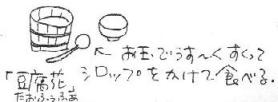 ← お玉でうす〜くすくって
シロップをかけて食べる。
「豆腐花
たおふぅふぁ